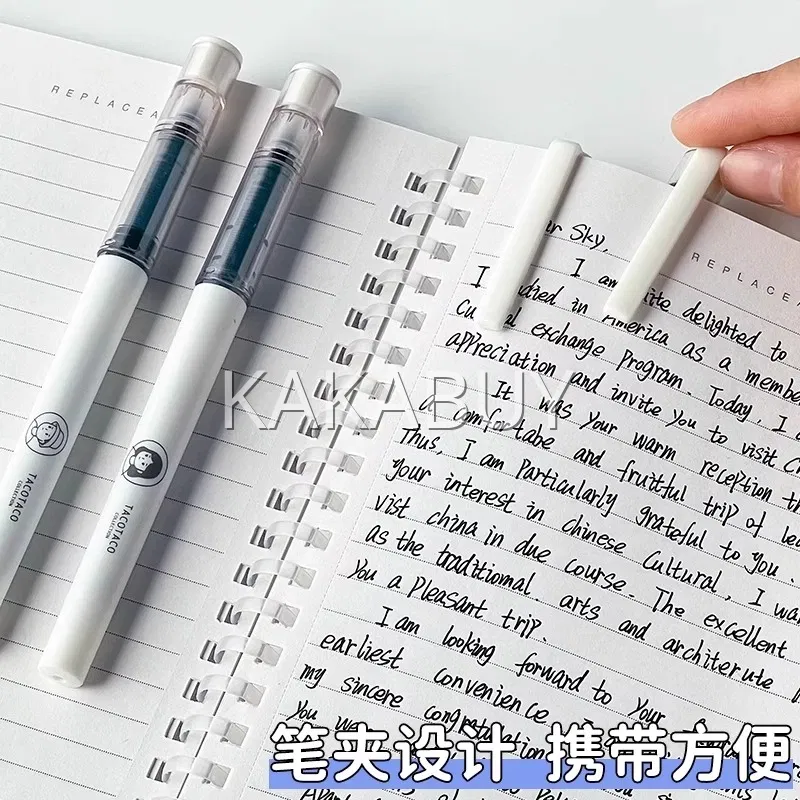 REPLACEA
REPLACEA
Sky,
I am delighted to
in America as a membe
exchange program. Today, I
appreciation and invite you to visit
It was your warm reception
a comfortabe and fruitful trip of
Thus, I am particularly grateful to you.
your interest in chinese cultural, I wan
vist china in due course. The excellent
as the traditional arts and architerute
You a pleasant trip.
I am looking forward to your
earliest convenience
my sincere congratulation
You
KAKABUY
TACOTACO
COLLECTION
TACOTACO
COLLECTION
笔夹设计 携带方便